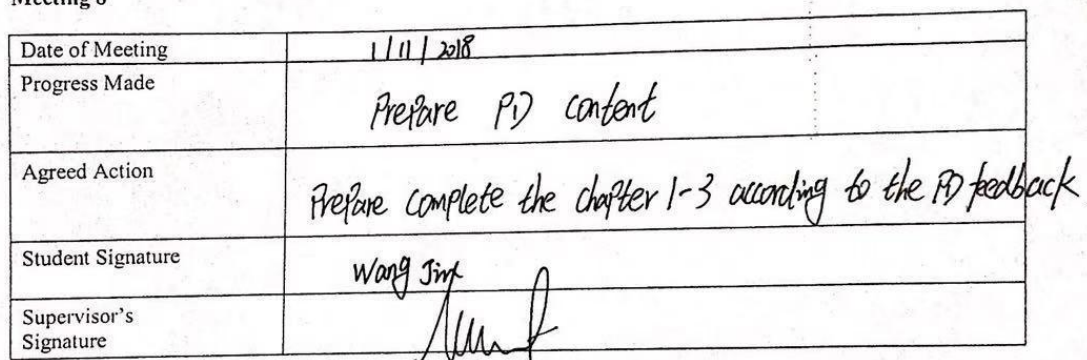 Date of Meeting 1/11/2018
Progress Made
Prepare PD content
Agreed Action
Prepare complete the chapter 1-3 according to the PD feedback
Student Signature
Wang
Supervisor's
Signature